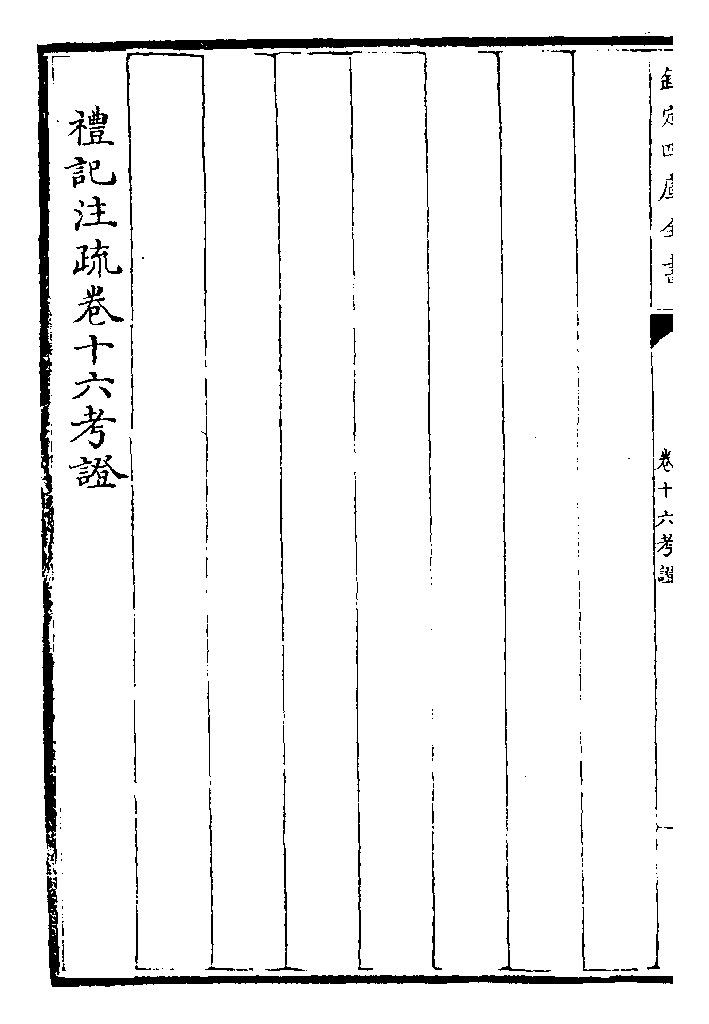 欽定四庫全書
卷十六考證
禮記注疏卷十六考證